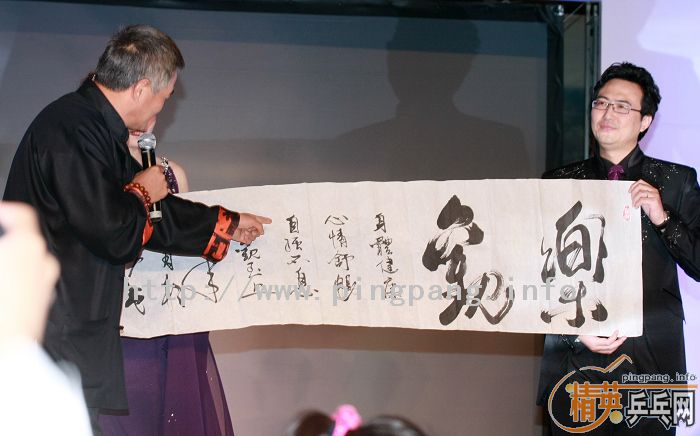 樂動
身體健康
心情舒暢
自強不息
http://www.pingpang.info
pingpang.info
精英乒乓网